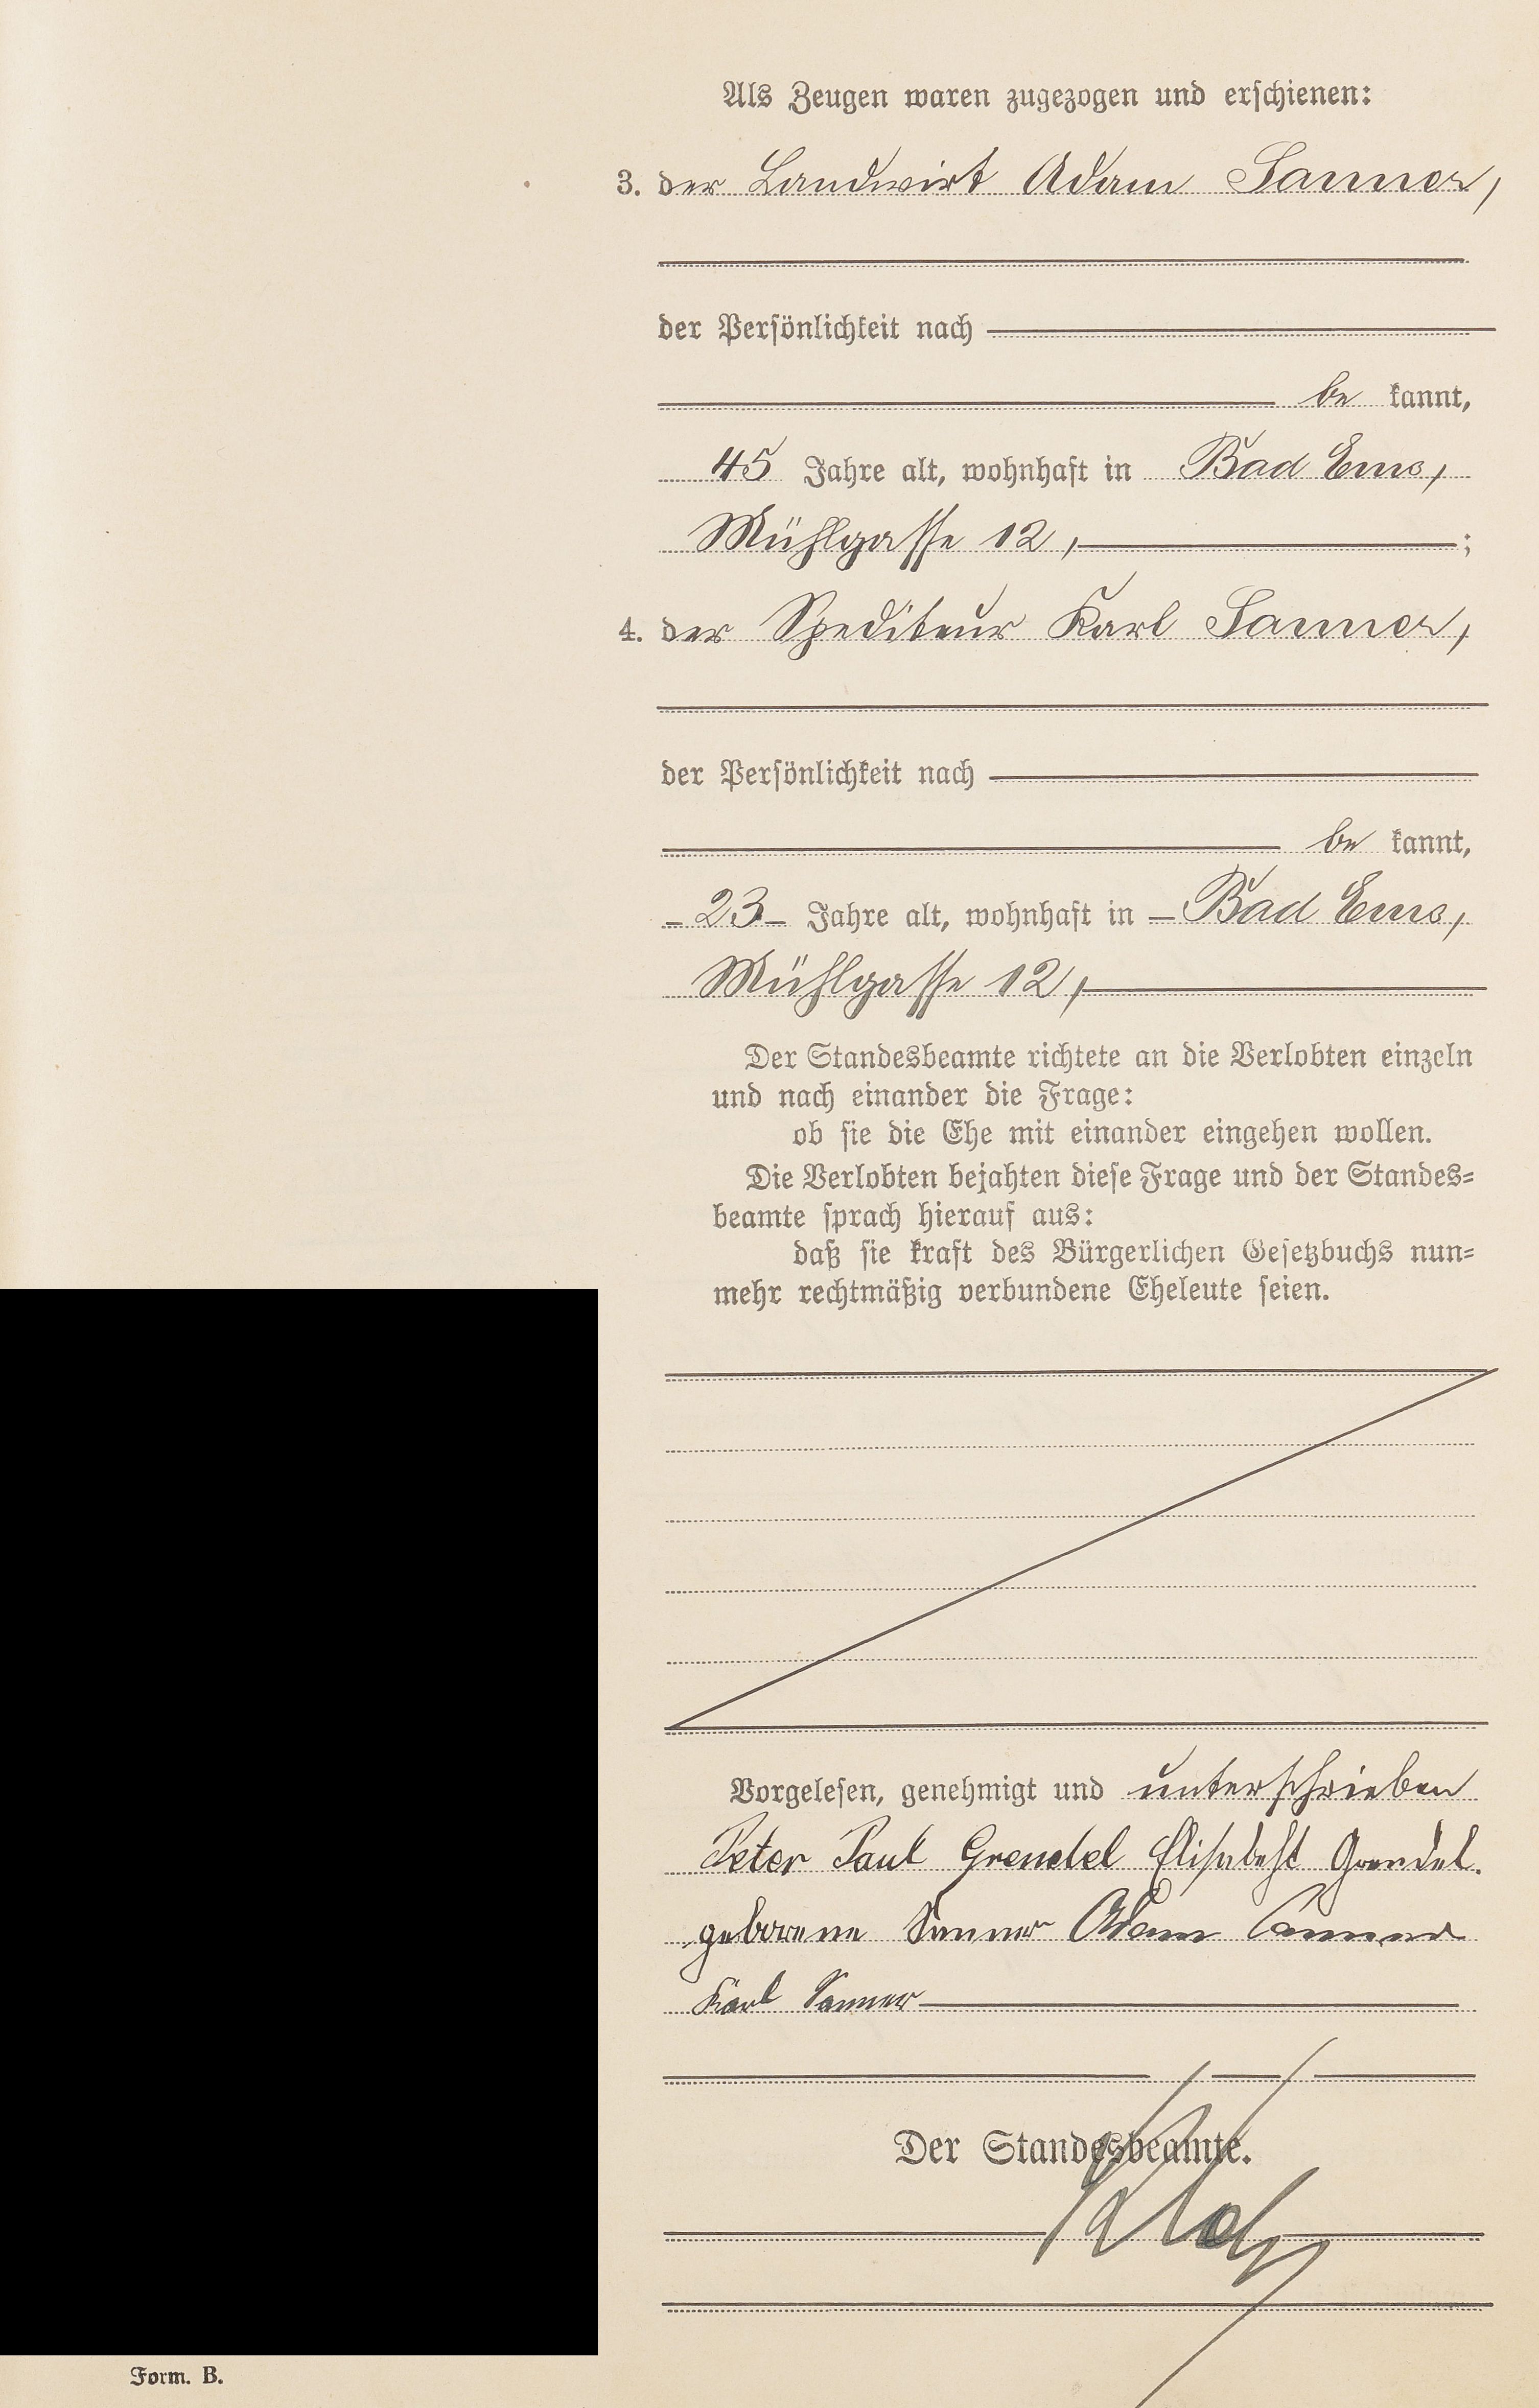 Als Zeugen waren zugezogen und erschienen:
3. der Landwirt Adam Sanner,
der Persönlichkeit nach
be kannt,
45 Jahre alt, wohnhaft in Bad Ems,
Mühlgasse 12, ;
4. der Spediteur Karl Sanner,
der Persönlichkeit nach
be kannt,
- 23 - Jahre alt, wohnhaft in - Bad Ems,
Mühlgasse 12,
Der Standesbeamte richtete an die Verlobten einzeln
und nach einander die Frage:
ob sie die Ehe mit einander eingehen wollen.
Die Verlobten bejahten diese Frage und der Standes=
beamte sprach hierauf aus:
daß sie kraft des Bürgerlichen Gesetzbuchs nun=
mehr rechtmäßig verbundene Eheleute seien.
Vorgelesen, genehmigt und unterschrieben
Peter Paul Grendel Elisabeht Grendel.
geborene Sanner Adam Sanner
Karl Sanner
Der Standesbeamte.
Form. B.